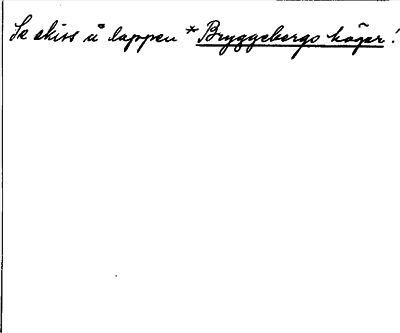 Se skiss å lappen *Bryggebergs hågar!